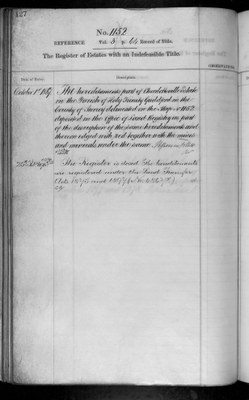 127
No. 1152
REFERENCE Vol. 3 p. 64 Record of Title.
The Register of Estates with an Indefeasible Title.
Date of Entry.
Description.
October 1st 1867
The hereditaments part of Charlotteville Estate
in the Parish of Holy Trinity Guildford in the
County of Surrey delineated on the Map No. 1152
deposited in the Office of Land Registry as part
of the description of the same hereditaments and
thereon edged with red together with the mines
and minerals under the same
The Register is closed. The hereditaments
are registered under the Land Transfer
Acts 1875 and 1897